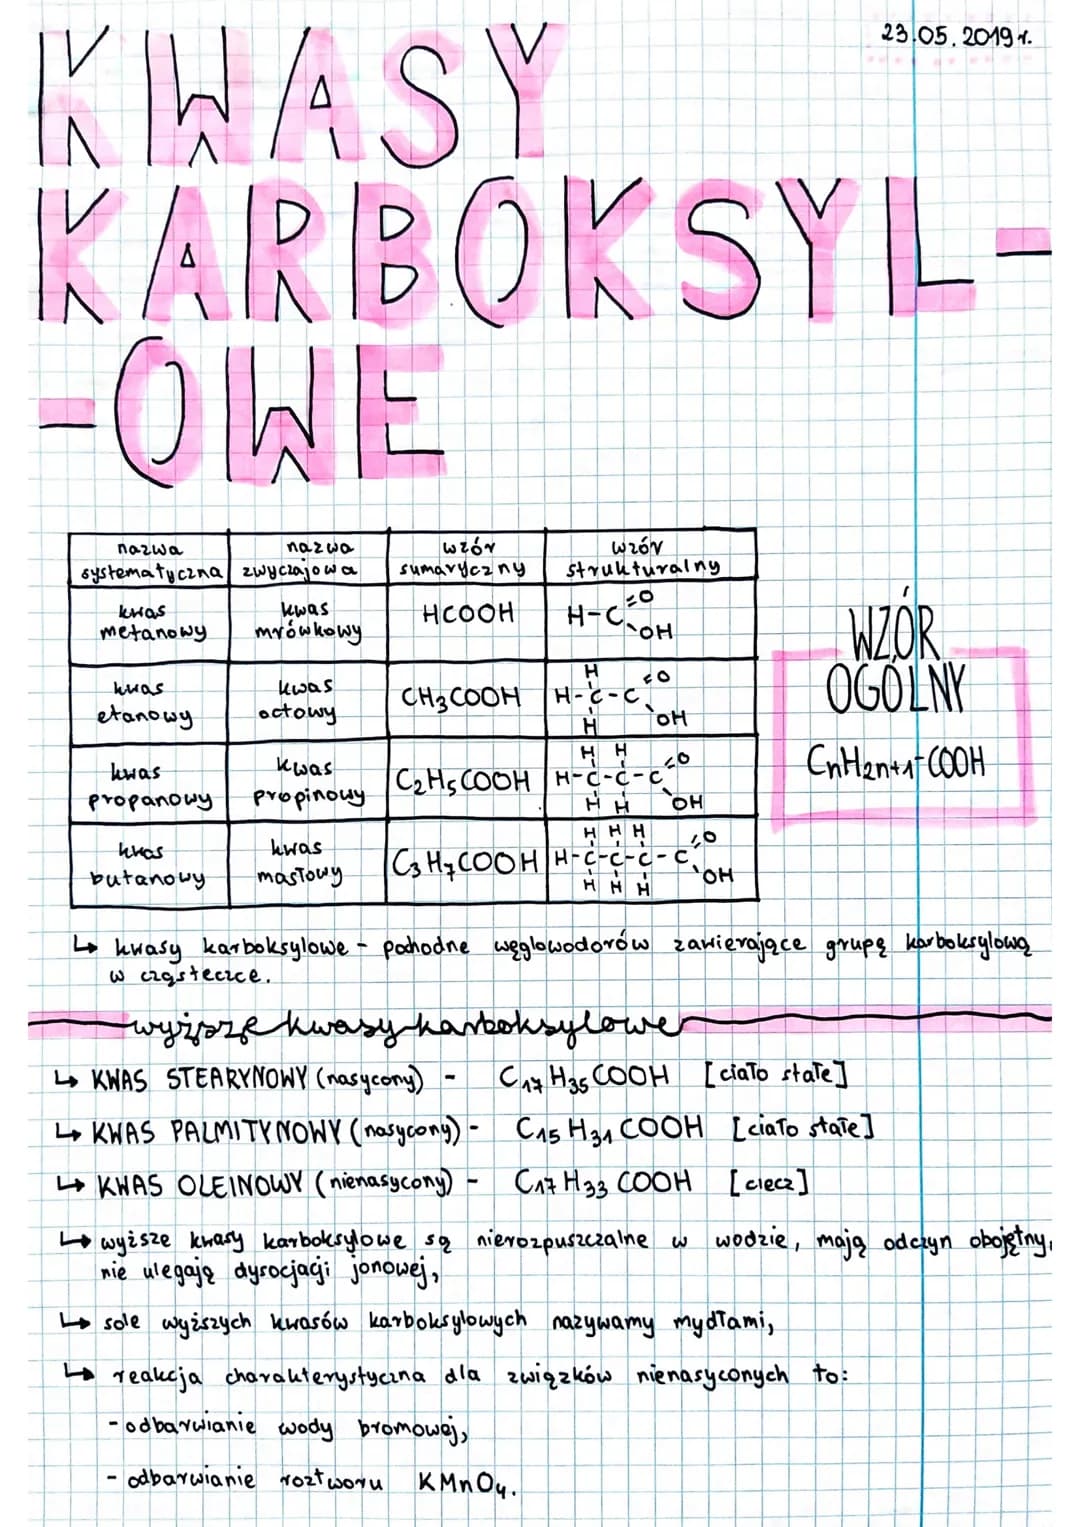 23.05.2019 r.
KWASY
KARBOKSYL-
-OWE
nazwa systematyczna | nazwa zwyczajowa | wzór sumaryczny | wzór strukturalny
kwas metanowy | kwas mrówkowy | HCOOH | H-C=O OH
kwas etanowy | kwas octowy | CH3COOH | H H-C-C=O H OH
kwas propanowy | kwas propinowy | C2H5COOH | H H H-C-C-C=O H H OH
kwas butanowy | kwas masłowy | C3H7COOH | H H H H-C-C-C-C=O H H H OH
WZÓR
OGÓLNY
CnH2n+1-COOH
↳ kwasy karboksylowe - pochodne węglowodorów zawierające grupę karboksylową
w cząsteczce.
wyższe kwasy karboksylowe
↳ KWAS STEARYNOWY (nasycony) - C17H35COOH [ciało stałe]
↳ KWAS PALMITYNOWY (nasycony) - C15H31COOH [ciało stałe]
↳ KWAS OLEINOWY (nienasycony) - C17H33COOH [ciecz]
↳ wyższe kwasy karboksylowe są nierozpuszczalne w wodzie, mają odczyn obojętny,
nie ulegają dysocjacji jonowej,
↳ sole wyższych kwasów karboksylowych nazywamy mydłami,
↳ reakcja charakterystyczna dla związków nienasyconych to:
- odbarwianie wody bromowej,
- odbarwianie roztworu KMnO4.